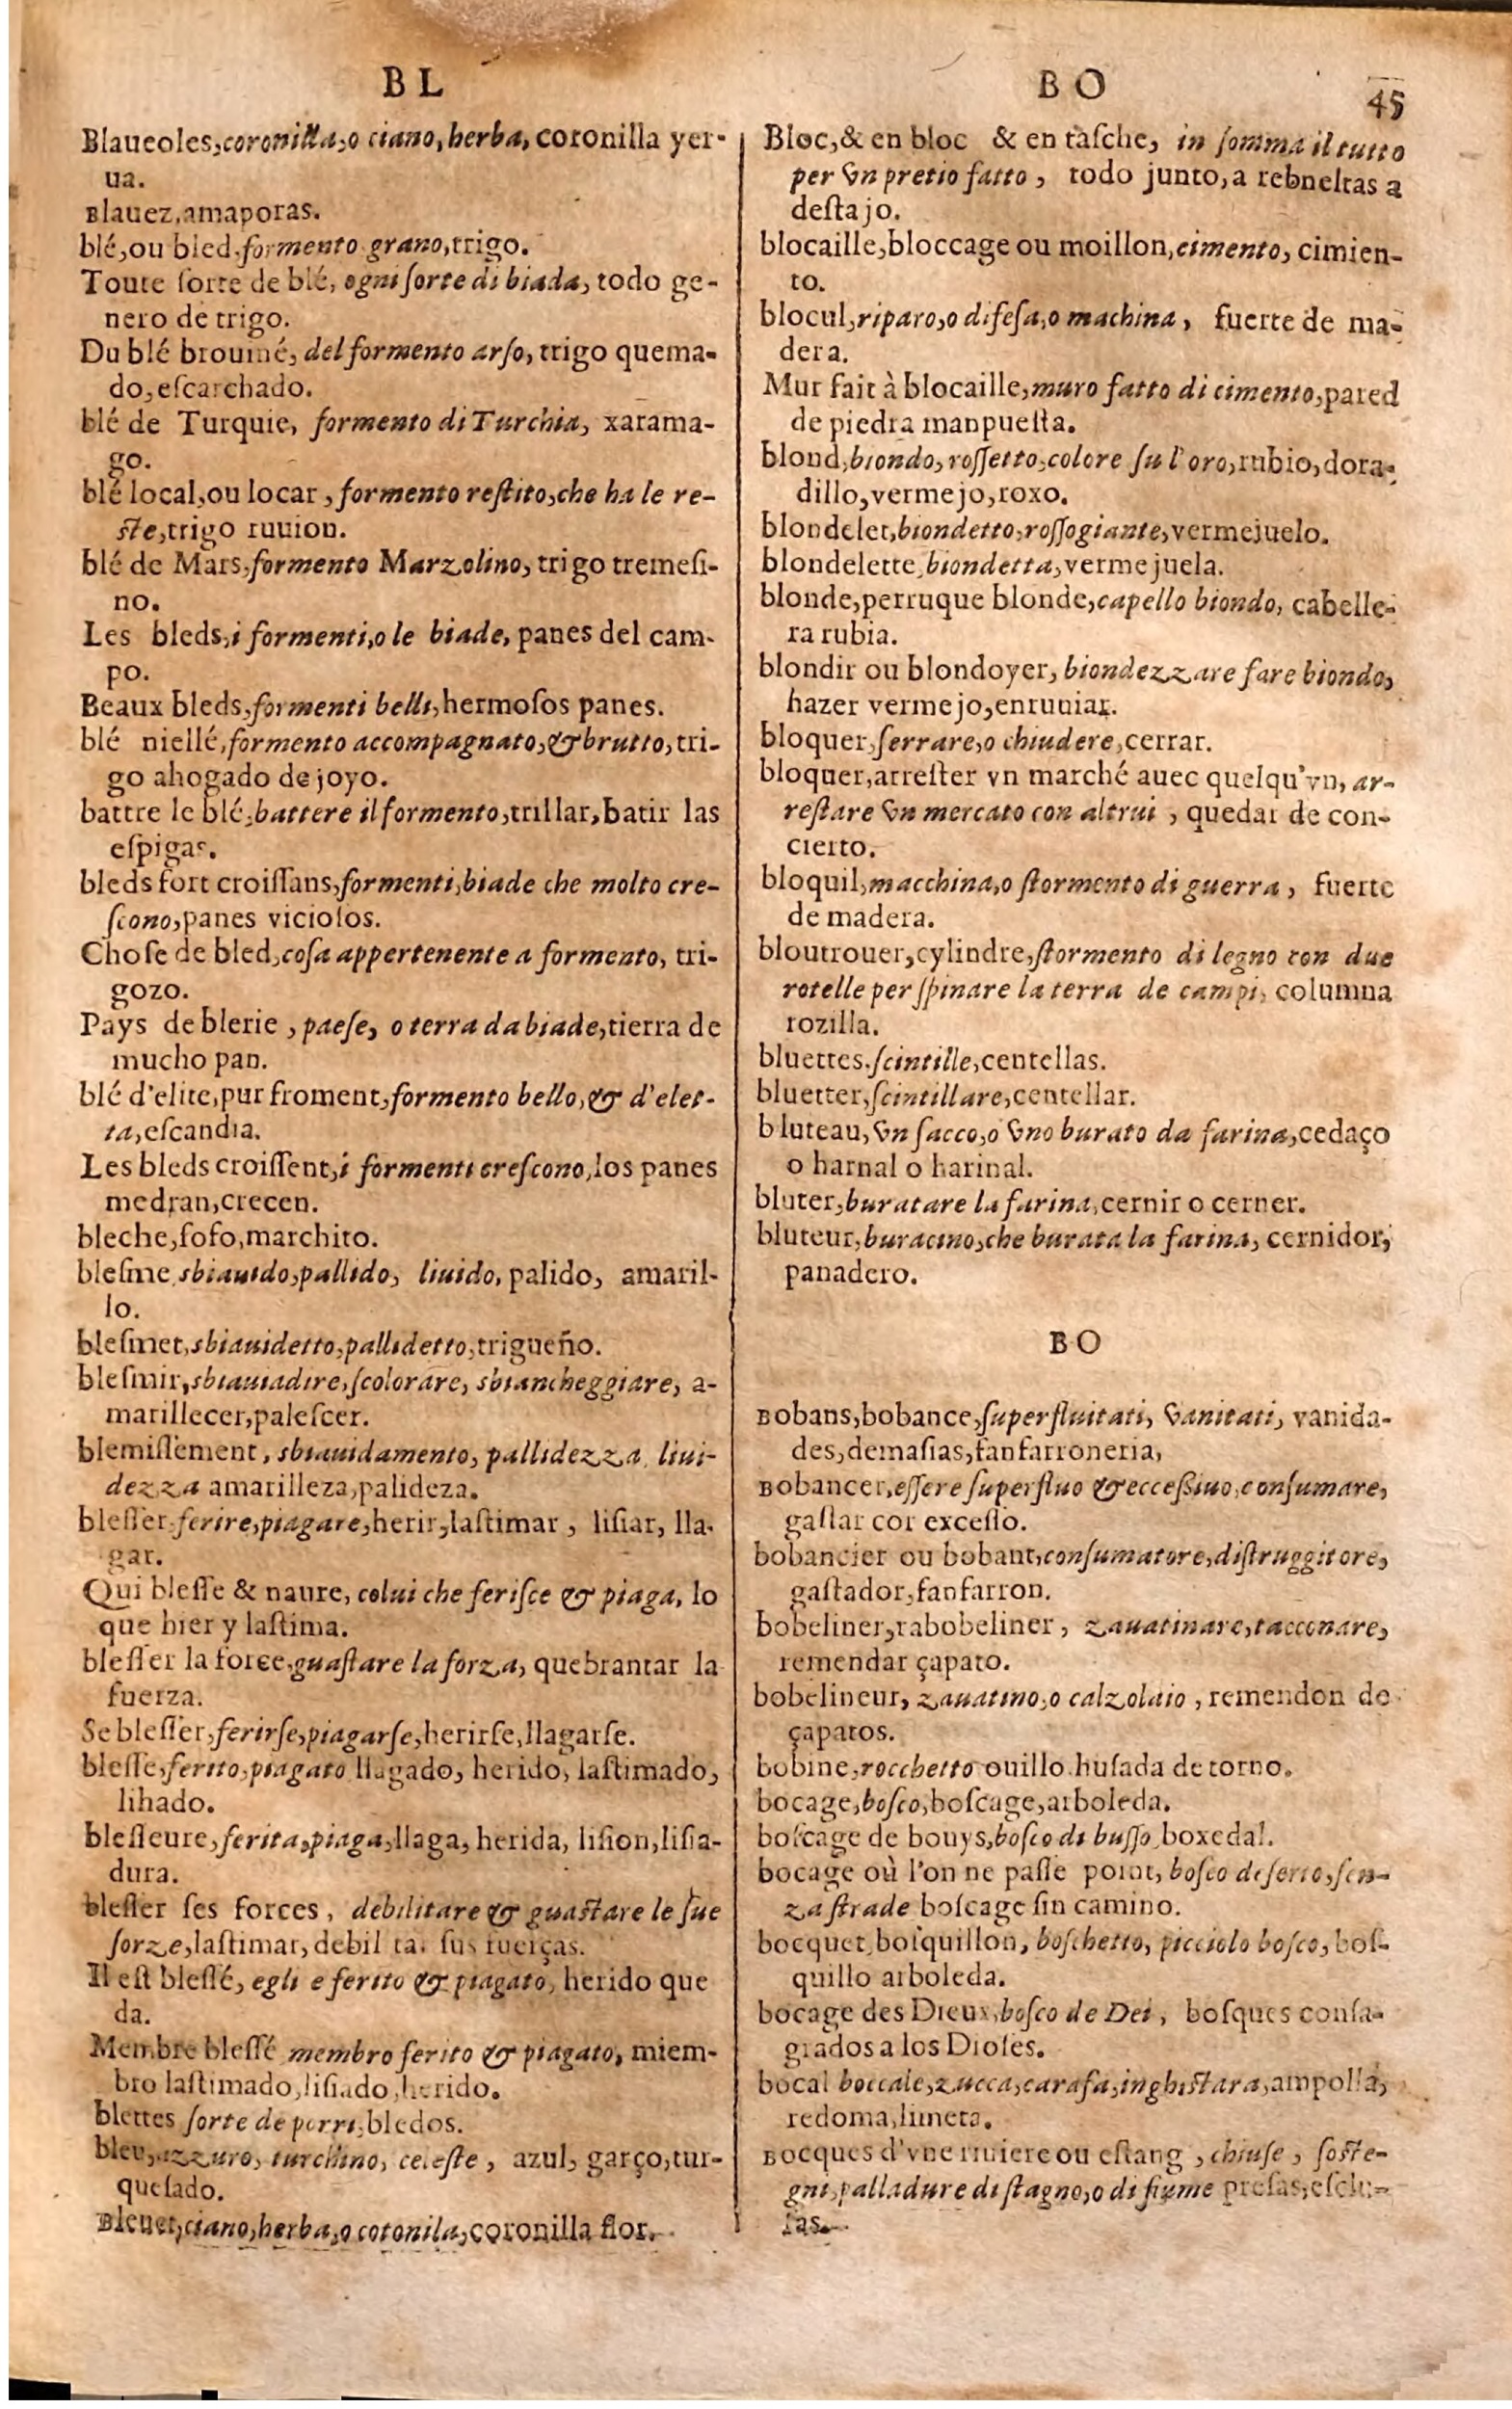 BL
Blaueoles,coronilla,o ciano,herba, coronilla yer-
ua.
Blauez,amaporas.
blé,ou bled,formento grano,trigo.
Toute ſorte de blé, ogni ſorte di biada, todo ge-
nero de trigo.
Du blé brouiné, del formento arſo, trigo quema-
do,eſcarchado.
blé de Turquie, formento di Turchia, xarama-
go.
blé local,ou locar, formento reſtito,che ha le re-
ſte,trigo ruuion.
blé de Mars,formento Marzolino, trigo tremeſi-
no.
Les bleds,i formenti,o le biade, panes del cam-
po.
Beaux bleds,formenti belli,hermoſos panes.
blé niellé,formento accompagnato,& brutto,tri-
go ahogado de joyo.
battre le blé,battere il formento,trillar,batir las
eſpigas.
bleds fort croiſſans,formenti,biade che molto cre-
ſcono,panes vicioſos.
Choſe de bled,coſa appertenente a formento, tri-
gozo.
Pays de blerie, paeſe, o terra da biade,tierra de
mucho pan.
blé d'elite,pur froment,formento bello,& d'elet-
ta,eſcandia.
Les bleds croiſſent,i formenti creſcono,los panes
medran,crecen.
bleche,fofo,marchito.
bleſme,sbiauido,pallido, liuido, palido, amaril-
lo.
bleſmet,sbiauidetto,pallidetto,trigueño.
bleſmir,sbiauiadire,ſcolorare, sbiancheggiare, a-
marillecer,paleſcer.
blemiſſement, sbiauidamento, pallidezza, liui-
dezza amarilleza,palideza.
bleſſer,ferire,piagare,herir,laſtimar, liſiar, lla-
gar.
Qui bleſſe & naure, colui che feriſce & piaga, lo
que hier y laſtima.
bleſſer la force,guaſtare la forza, quebrantar la
fuerza.
Se bleſſer,ferirſe,piagarſe,herirſe,llagarſe.
bleſſe,ferito,piagato llagado, herido, laſtimado,
liſiado.
bleſſeure,ferita,piaga,llaga, herida, liſion,liſia-
dura.
bleſſer ſes forces, debilitare & guaſtare le ſue
forze,laſtimar,debilitar ſus fuerças.
Il eſt bleſſé, egli e ferito & piagato, herido que
da.
Membre bleſſé membro ferito & piagato, miem-
bro laſtimado,liſiado,herido.
blettes ſorte de porri,bledos.
bleu,azzuro, turchino, celeſte, azul, garço,tur-
queſado.
Bleuet,ciano,herba,o cotonila,coronilla flor.
BO
45
Bloc,& en bloc & en taſche, in ſomma il tutto
per vn pretio fatto, todo junto,a rebneltas a
deſtajo.
blocaille,bloccage ou moillon,cimento, cimien-
to.
blocul,riparo,o difeſa,o machina, fuerte de ma-
dera.
Mur fait à blocaille,muro fatto di cimento,pared
de piedra manpueſta.
blond,biondo,roſſetto,colore ſu l'oro,rubio,dora-
dillo,vermejo,roxo.
blondelet,biondetto,roſſogiante,vermejuelo.
blondelette,biondetta,vermejuela.
blonde,perruque blonde,capello biondo, cabelle-
ra rubia.
blondir ou blondoyer, biondezzare fare biondo,
hazer vermejo,enruuiar.
bloquer,ſerrare,o chiudere,cerrar.
bloquer,arreſter vn marché auec quelqu'vn, ar-
reſtare vn mercato con altrui, quedar de con-
cierto.
bloquil,macchina,o ſtormento di guerra, fuerte
de madera.
bloutrouer,cylindre,ſtormento di legno con due
rotelle per ſpinare la terra de campi, columna
rozilla.
bluettes.ſcintille,centellas.
bluetter,ſcintillare,centellar.
bluteau,vn ſacco,o vno burato da farina,cedaço
o harnal o harinal.
bluter,buratare la farina,cernir o cerner.
bluteur,buracino,che burata la farina, cernidor,
panadero.
BO
Bobans,bobance,ſuperfluitati, vanitati, vanida-
des,demaſias,fanfarroneria,
Bobancer,eſſere ſuperfluo & ecceſſiuo,conſumare,
gaſtar cor exceſſo.
bobancier ou bobant,conſumatore,diſtruggitore,
gaſtador,fanfarron.
bobeliner,rabobeliner, zauatinare,tacconare,
remendar çapato.
bobelineur, zauatino,o calzolaio, remendon de
çapatos.
bobine,rocchetto ouillo huſada de torno.
bocage,boſco,boſcage,arboleda.
boſcage de bouys,boſco di buſſo,boxedal.
bocage où l'on ne paſſe point, boſco deſerto,ſen-
za ſtrade boſcage ſin camino.
bocquet,boſquillon, boſchetto, picciolo boſco, boſ-
quillo arboleda.
bocage des Dieux,boſco de Dei, boſques conſa-
grados a los Dioſes.
bocal boccale,zucca,carafa,inghiſtara,ampolla,
redoma,limeta.
Bocques d'vne riuiere ou eſtang, chiuſe, ſoſte-
gni,palladure di ſtagno,o di fiume preſas,eſclu-
ſas.